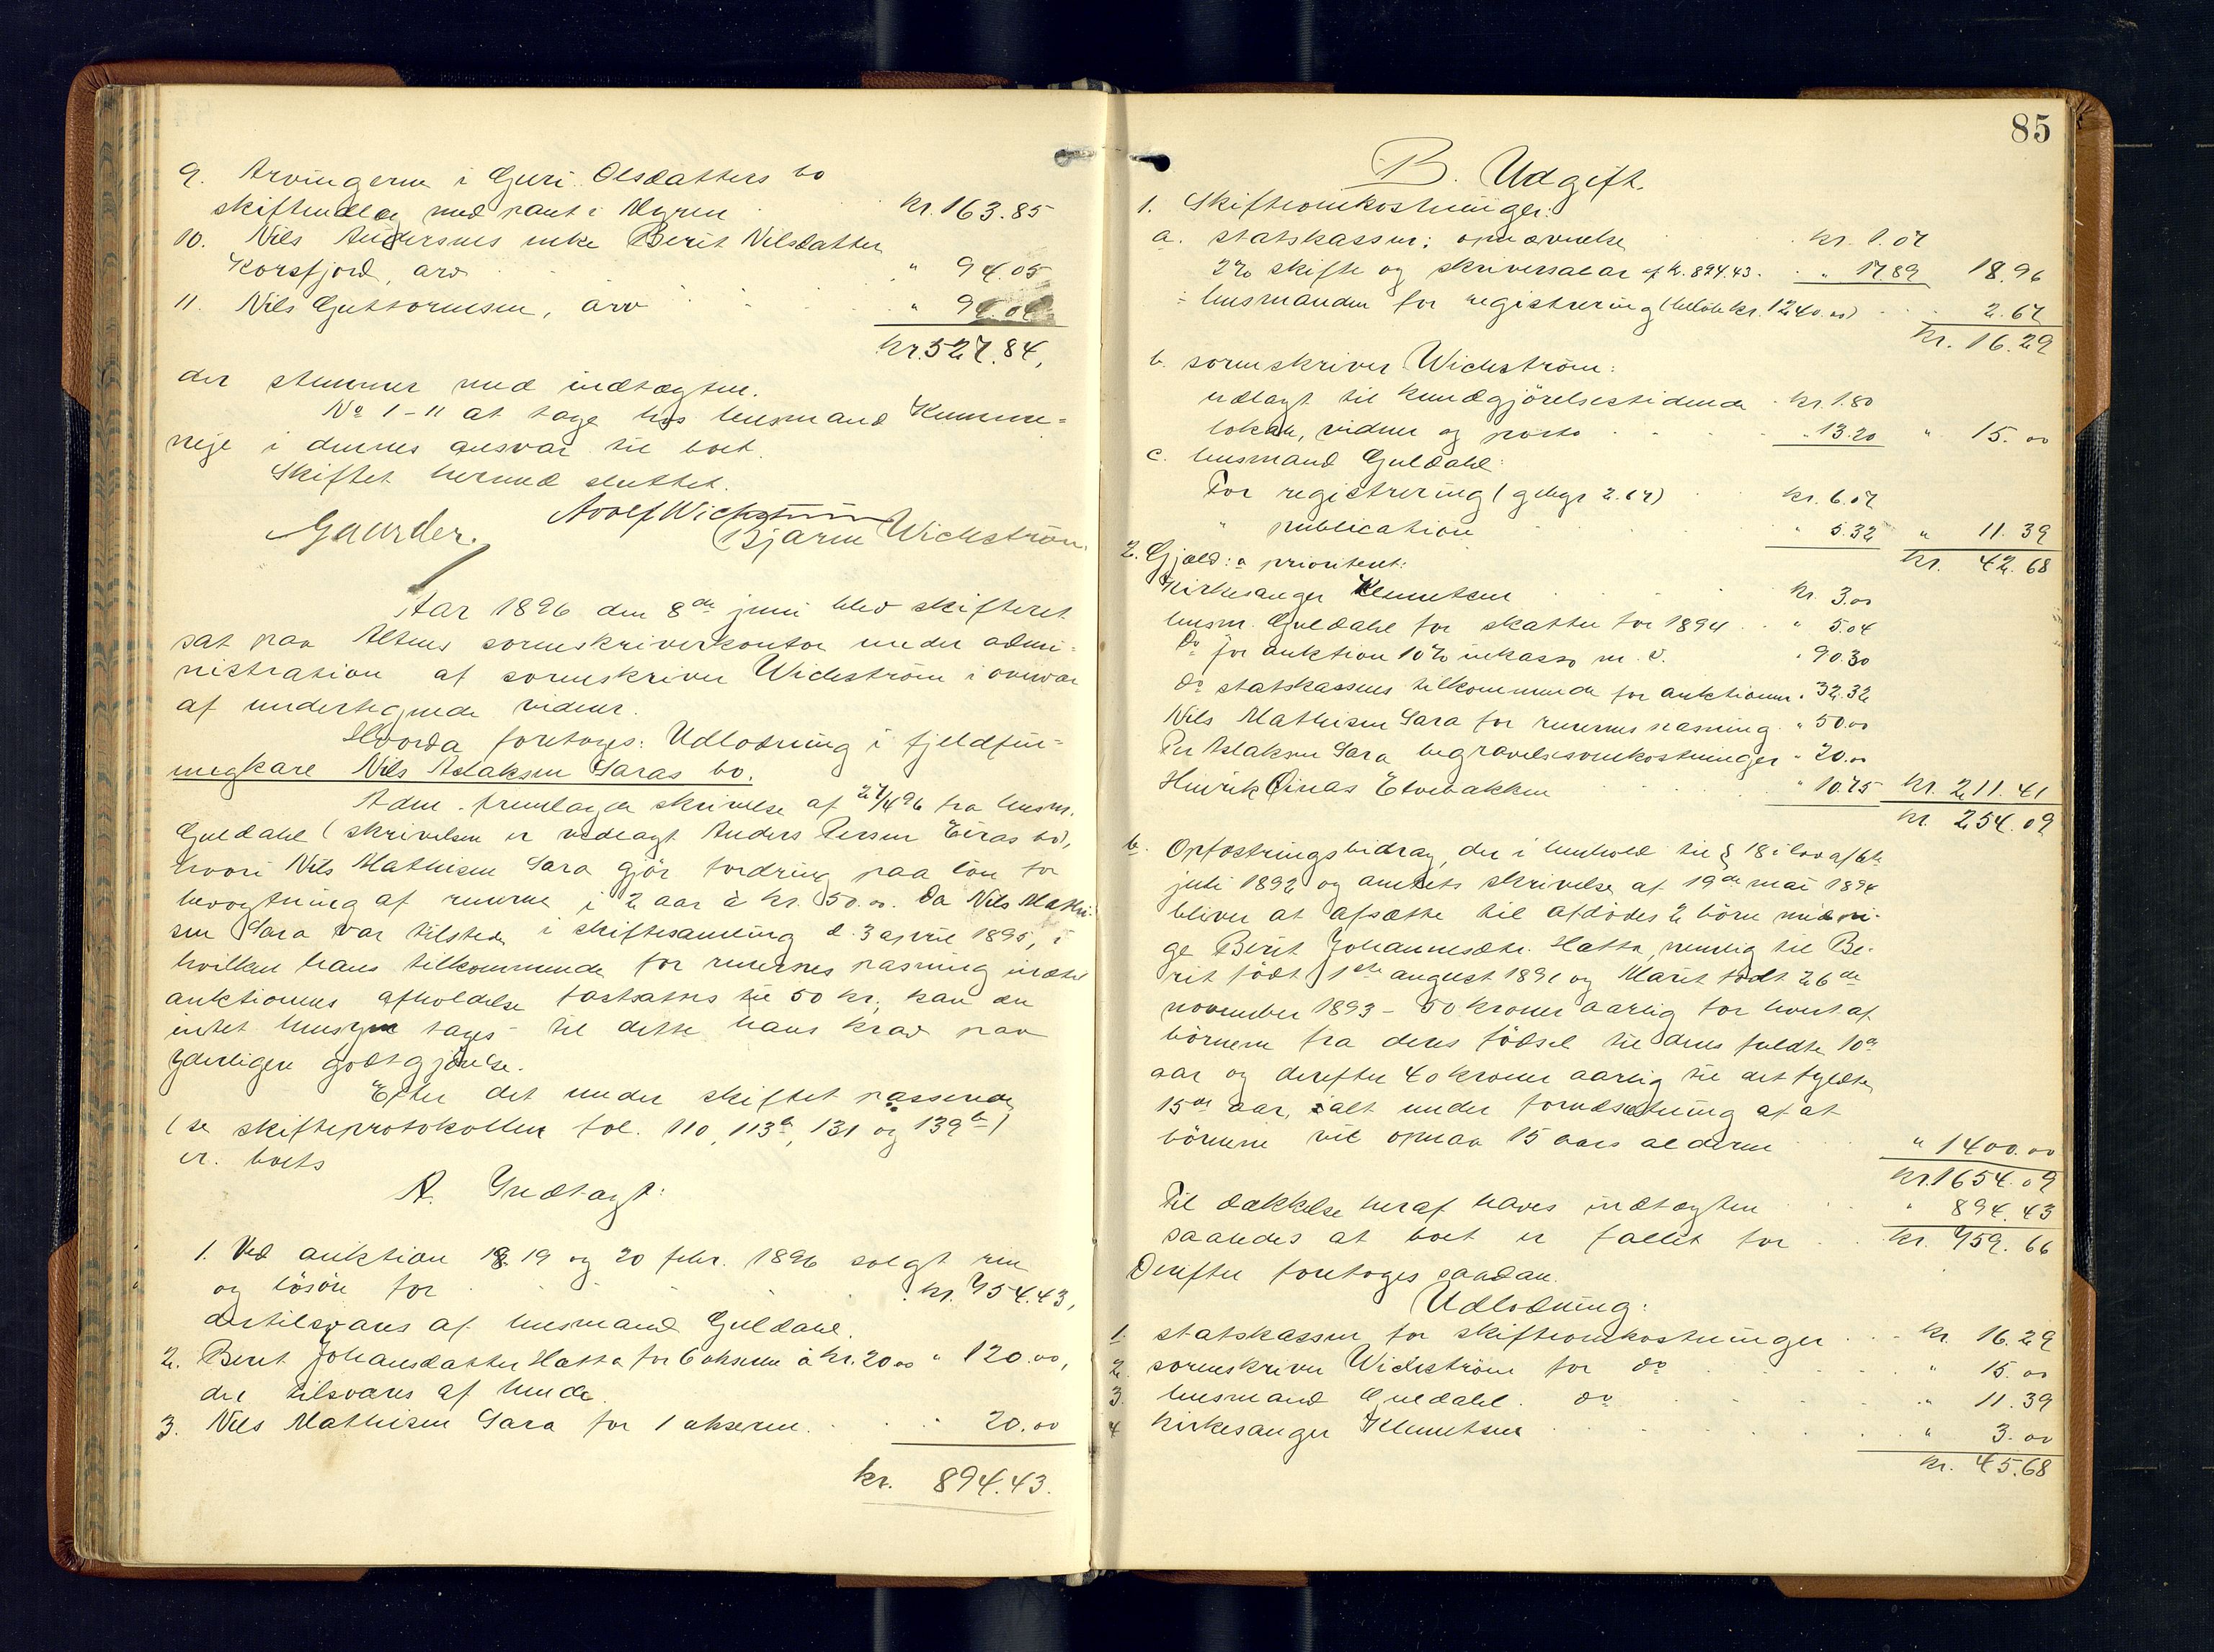 9. Arvingerne i Guri Olsdatters bo
skifteudlæg med pant i Myren kr. 163.85
10. Nils Andersens enke Berit Nilsdatter
Korsfjord, arv " 94.05
11. Nils Guttormsen, arv "
kr. 527.84,
der stemmer med indtægten.
No 1-11 at tage hos lensmand Kemme=
neje i dennes ansvar til boet.
Skiftet hermed sluttet.
Gaarder. Adolf Wichstrøm Bjarne Wichstrøm.
Aar 1896 den 8de juni blev skifteret
sat paa Altens sorenskriverkontor under admi=
nistration af sorenskriver Wichstrøm i overvær
af undertegnede vidner.
Hvorda foretoges: Udlodning i fjeldfin=
megkare Nils Aslaksen Saras bo.
Adm. fremlagde skrivelse af 27/4 96 fra lensm.
Guldahl (skrivelsen er vedlagt Anders Persen Eiras bo),
hvori Nils Mathisen Sara gjør fordring paa løn for
bevogtning af renerne i 2 aar à kr. 50.00. Da Nils Mathi-
sen Sara var tilstede i skiftesamling d. 3 april 1895, i
hvilken hans tilkommende for renernes pasning indtil
auktionens afholdelse fastsattes til 50 kr., kan der
intet hensyn tages til dette hans krav paa
yderligere godtgjørelse.
Efter det under skiftet passerede
(se skifteprotokollen fol. 110, 113b, 131 og 139b)
er boets
A. Indtægt:
1. Ved auktion 18 19 og 20 febr. 1896 solgt ren
og løsøre for kr. 754.43,
der tilsvares af lensmand Guldahl.
2. Berit Johansdatter Hatta for 6 okserener à kr. 20.00 " 120.00,
der tilsvares af hende.
3. Nils Mathisen Sara for 1 okseren 20.00
kr. 894.43.
85
B. Udgift.
1. Skifteomkostninger:
a. statskassen: opnævnelse kr. 1.07
2% skifte og skriversalær af kr. 894.43. " 17.89 18.96
÷ lensmanden for registrering (beløb kr. 1240.00) 2.67
kr. 16.29
b. sorenskriver Wichstrøm:
udlagt til kundgjørelsestidende kr. 1.80
lokale, vidner og porto " 13.20 " 15.00
c. lensmand Guldahl:
For registrering (gebyr 2.67) kr. 6.07
" publication " 5.32 " 11.39
kr. 42.68
2. Gjæld: a prioritert:
Kirkesanger Klemetsen kr. 3.00
lensm. Guldahl for skatter for 1894 " 5.04
Do for auktion 10% inkasso m. v. " 90.30
do statskassens tilkommende for auktionen " 32.32
Nils Mathisen Sara for renernes pasning " 50.00
Per Aslaksen Sara begravelsesomkostninger " 20.00
Henrik Qinas Elvebakken " 10.75 kr. 211.41
kr. 254.09
b. Opfostringsbidrag, der i henhold til § 18 i lov af 6te
juli 1892 og amtets skrivelse af 19de mai 1894
bliver at afsætte til afdødes 2 børn med pi-
ge Berit Johannesdtr. Hatta, nemlig til Be-
rit født 1ste august 1891 og Marit født 26de
november 1893 - 50 kroner aarlig for hvert af
børnene fra deres fødsel til deres fuldte 10de
aar og derefter 40 kroner aarlig til det fyldte
15de aar, ialt under forudsætning af at
børnene vil opnaa 15 aars alderen " 1400.00
kr. 1654.09
Til dækkelse heraf haves indtægten " 894.43
saaledes at boet er fallit for kr. 759.66
Derefter foretoges saadan
Udlodning:
1. statskassen for skifteomkostninger kr. 16.29
2. sorenskriver Wichstrøm for do " 15.00
3. lensmand Guldahl. do " 11.39
4 kirkesanger Klemetsen " 3.00
kr. 45.68